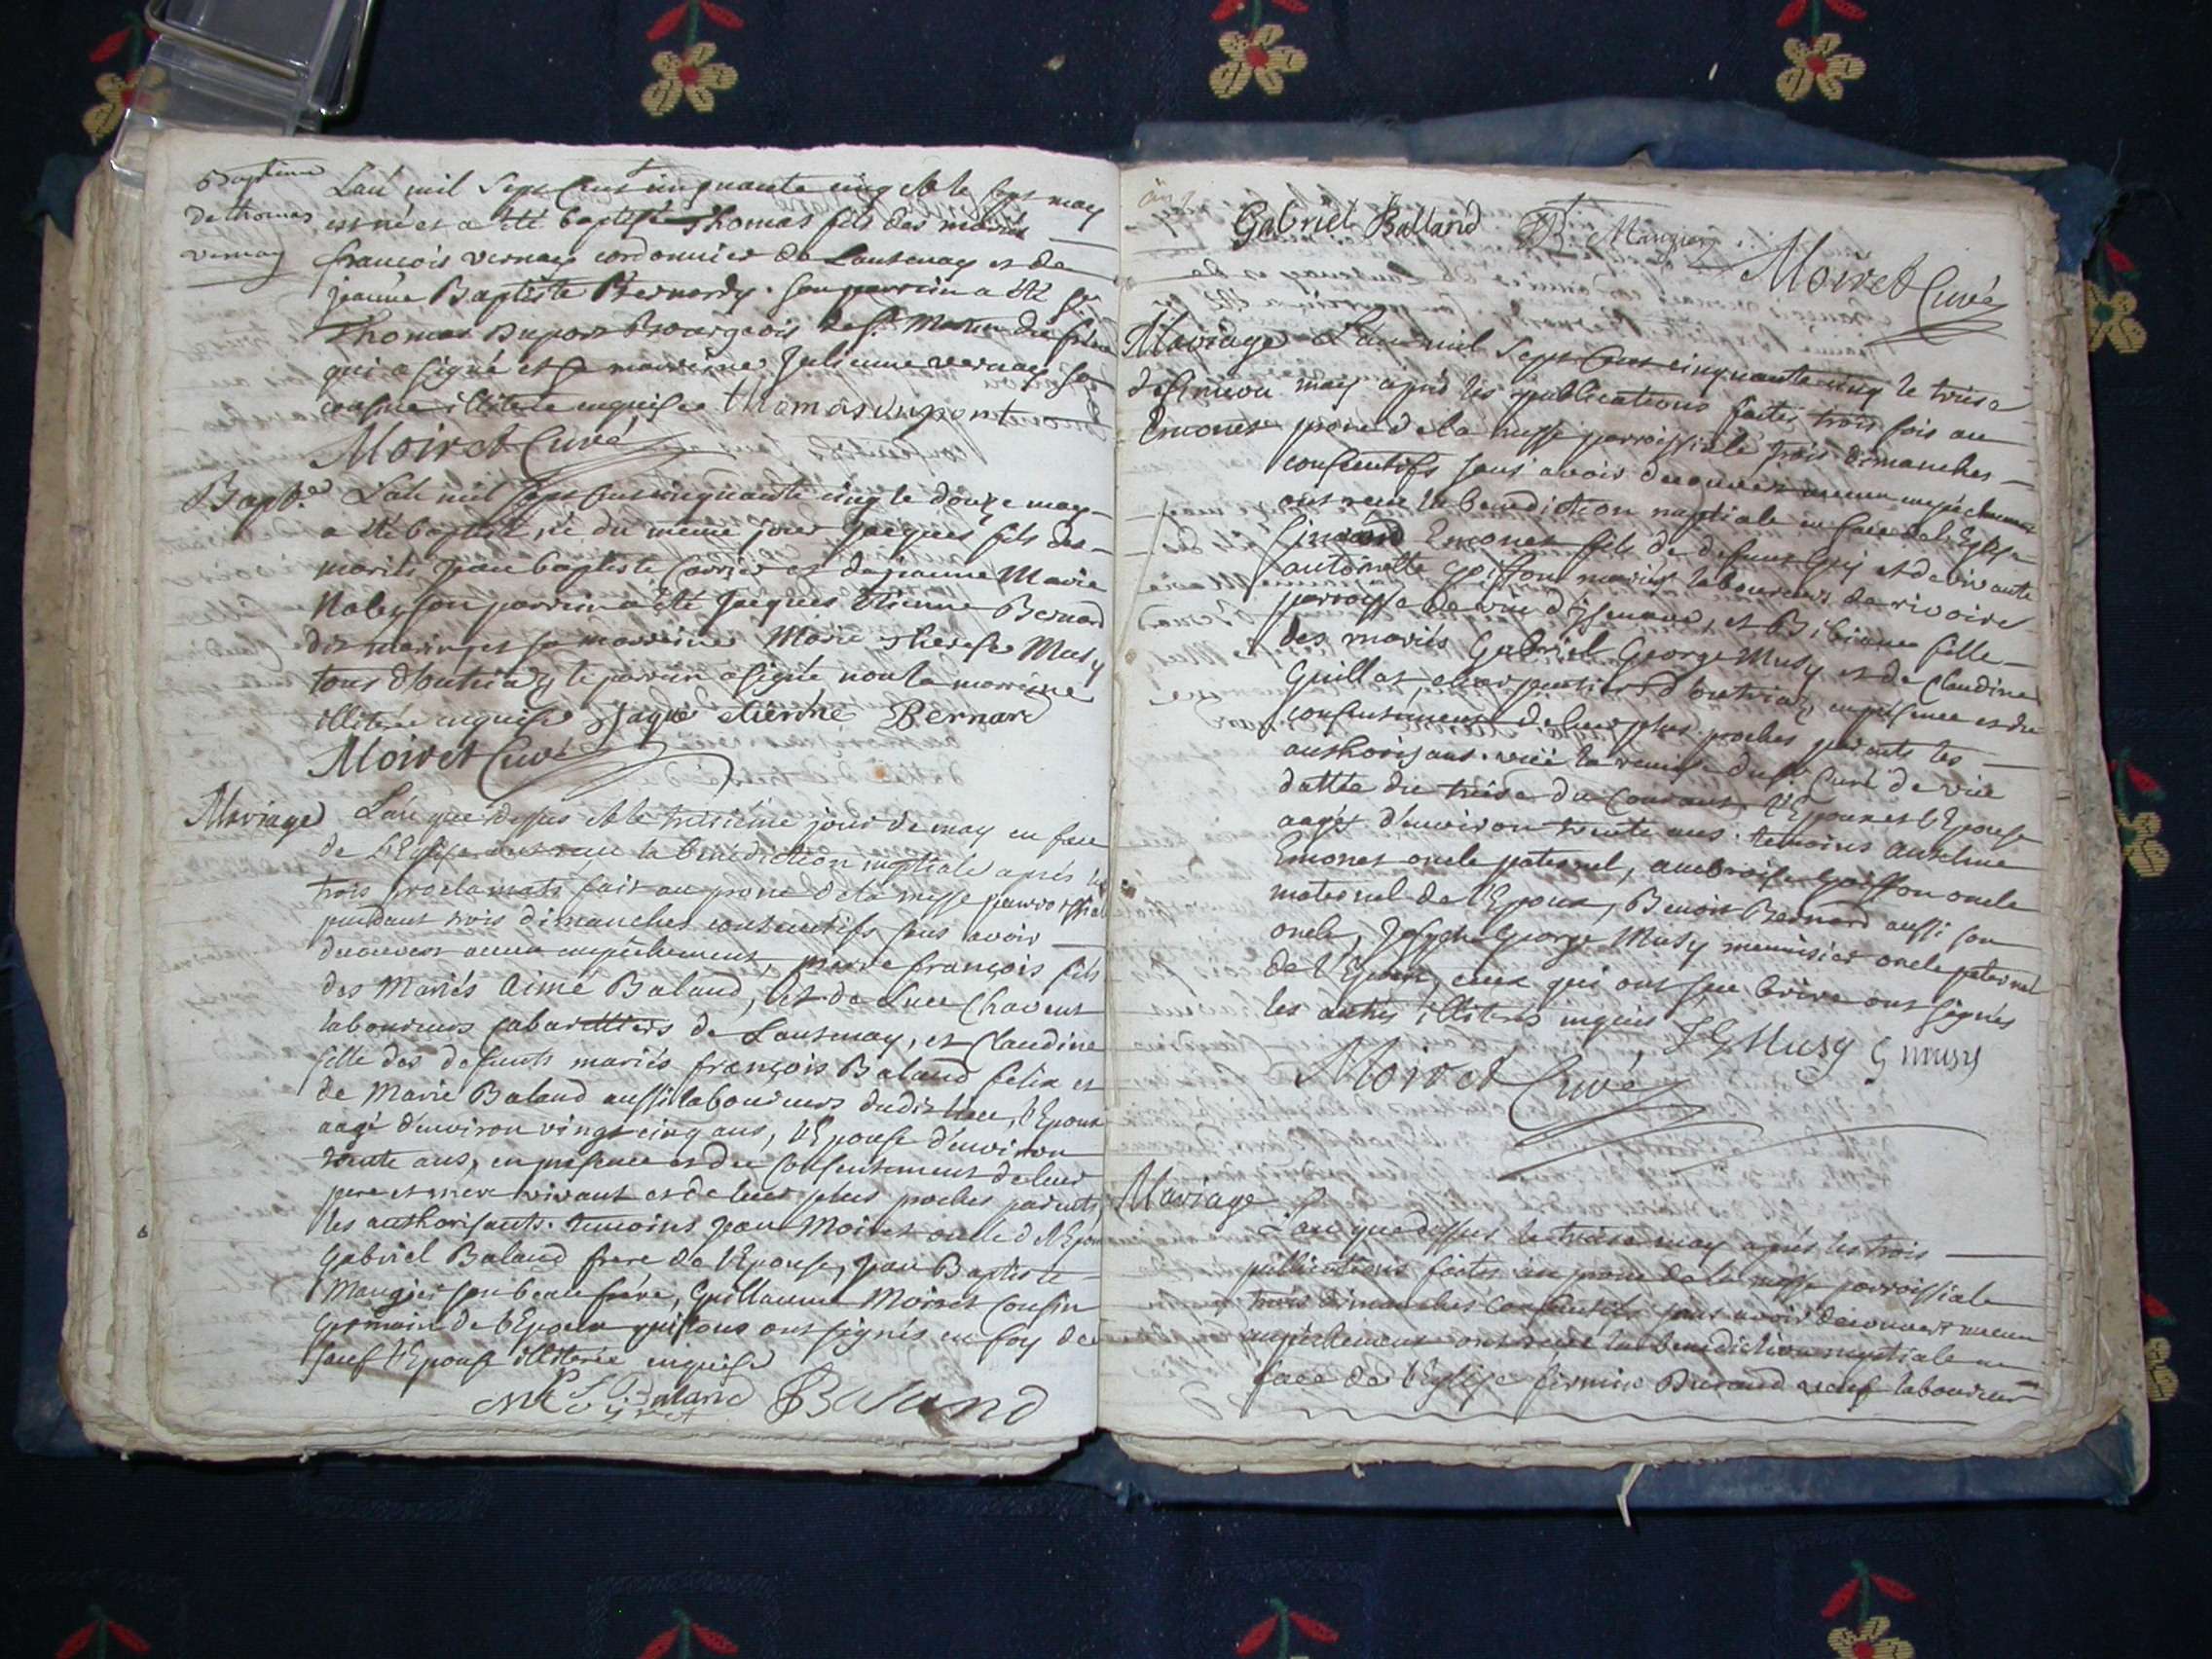 Baptême
de thomas
vernay
Lan mil sept cens cinquante cinq et le sept may
est né et a été baptisé Thomas fils des mariés
françois vernay cordonnier de Lantenay et de
jeanne Baptiste Bernardy. son parrein a été sr
Thomas Dupont Bourgeois de st Martin du frene
qui a signé et sa marreine Julienne vernay sa
cousine illiterée enquise thomas dupont
Moiret Curé
Bapt.e
Lan mil sept cens cinquante cinq le douze may
a été baptisé, né du meme jour Jacques fils des
mariés jean baptiste Carrier et de jeanne Marie
Naby, son parrein a été Jacques Etienne Bernard
dit et sa marreine Marie Therese Musy
tous d'outriaz le parrein a signé non la marreine
illiterée enquise Jaque etienne Bernard
Moiret Curé
Mariage
L'an que dessus et le treisiéme jour de may en face
de L'Eglise ont reçu la bénédiction nuptiale aprés les
trois proclamats fait au prone de la messe parroissiale
pendant trois dimanches consecutifs sans avoir
decouvert aucun empêchement, pierre françois fils
des Mariés Aimé Baland, et de Luce Chavent
laboureurs cabarettiers de Lantenay, et Claudine
fille des defunts mariés françois Baland felix et
de Marie Baland aussi laboureurs dudit lieu, l'Epoux
aagé d'environ vingt cinq ans, l'Epouse d'environ
trente ans, en présence et du consentement de leur
pere et mere vivant et de leur plus proches parents
les authorisants. temoins jean Moiret oncle de l'Epoux
Gabriel Baland frere de l'Epouse, jean Baptiste
Maugier son beau frére, Guillaume Moiret Cousin
germain de l'Epoux qui tous ont signés en foy de
sauf l'Epouse illiterée enquise
Baland
Gabriel Balland Maugier
Moiret Curé
Mariage
Emonet
L'an mil sept cens cinquante cinq le treise
may aprés les publications faites trois fois au
prone de la messe parroissiale trois dimanches
consecutifs sans avoir decouvert aucun empéchement
ont reçu la benediction nuptiale en face de l'Eglise
Emonet fils de defunt Guy et de vivante
antoinette Goiffon mariés laboureurs de rivoire
parroisse de vieu d'Isenave, et Bibiane fille
des mariés Gabriel George Musy et de Claudine
Guillot, charpentier d'outriaz, en présence et du
consentement de leur plus proches parents les
authorisant. veü la remise du sr Curé de vieu
dattée du treise du courant. l'Epoux et l'Epouse
aagés d'environ trente ans. temoins Anselme
Emonet oncle paternel, ambroise Goiffon oncle
maternel de l'Epoux, Benoit Bernard aussi son
oncle, Joseph George Musy menuisier oncle paternel
de l'Epouse, ceux qui ont sçu écrire ont signés
les autres illiterés enquis J G Musy G musy
Moiret Curé
Mariage
L'an que dessus le treise may aprés les trois
publications faites au prone de la messe parroissiale
trois dimanches consecutifs sans avoir decouvert aucun
empéchement ont reçu la benediction nuptiale en
face de l'Eglise firmin Durand veuf laboureur